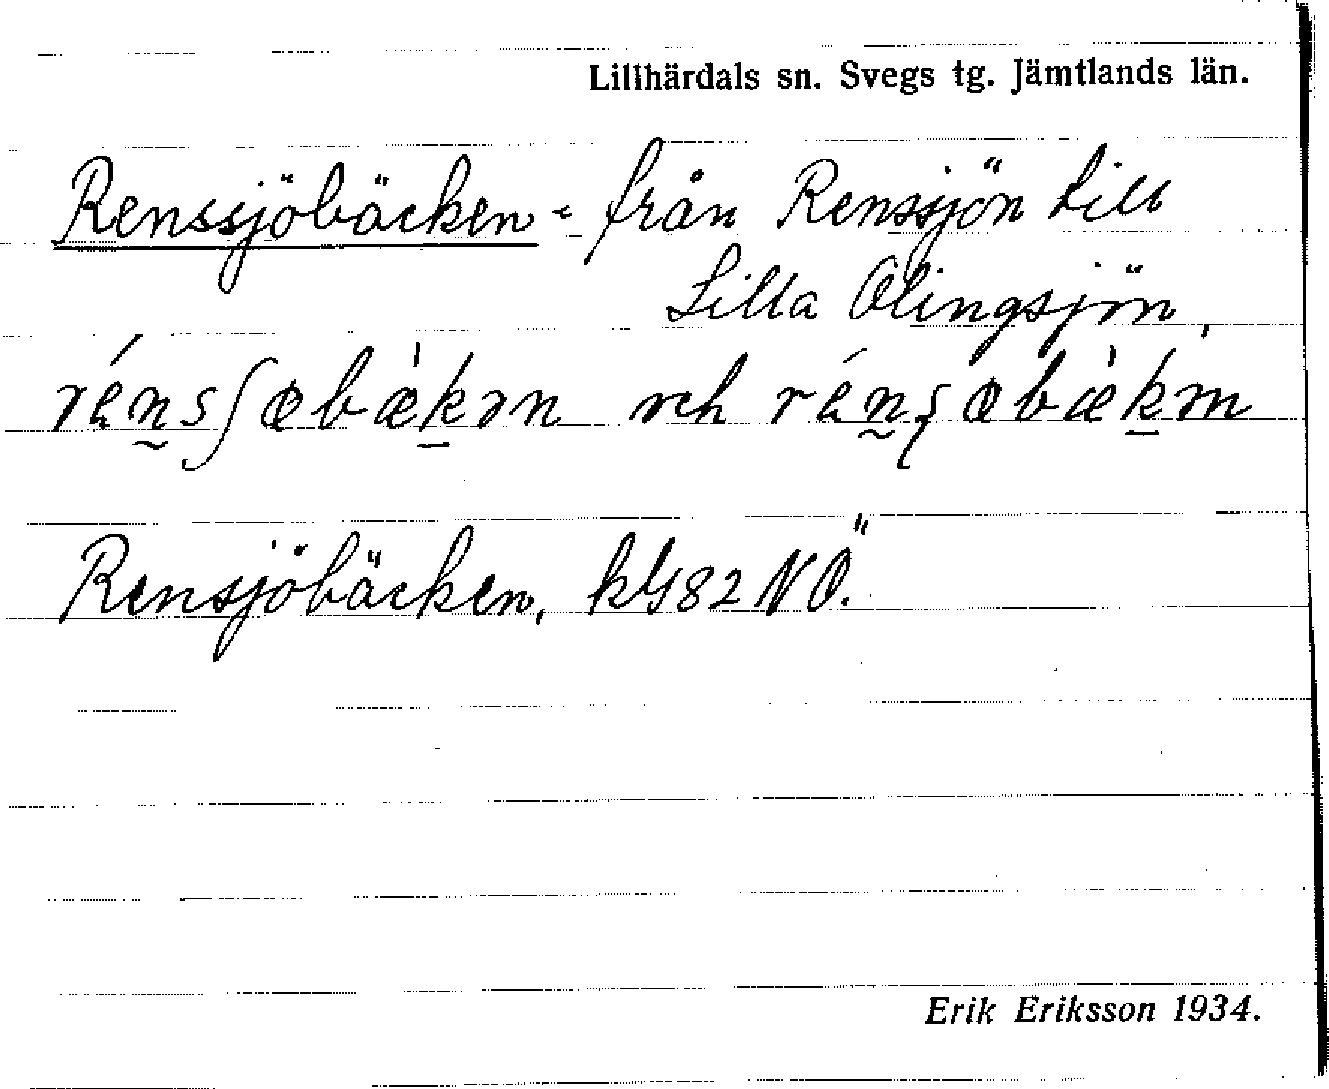 Lillhärdals sn. Svegs tg. Jämtlands län.
Renssjöbäcken - från Renssjön till
Lilla Ölingsjön,
och
Rensjöbäcken, kbl 82 NÖ.
Erik Eriksson 1934.